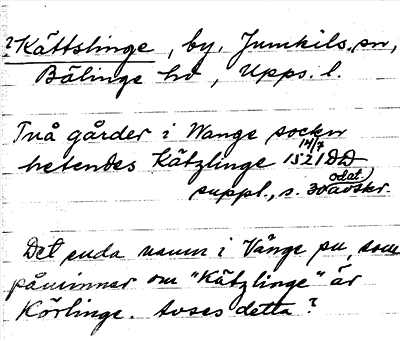 ?Kättslinge, by, Jumkils sn,
Bälinge hd, Upps. l.
Två gårder i Wange socken
hetendes Kätzlinge 14/7 1521 DD
suppl., s. 30 (odat.) avskr.
Det enda namn i Vänge sn, som
påminner om "Kätzlinge" är
Körlinge. Avses detta?